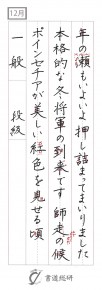 12月
年の瀬もいよいよ押し詰まってまいりました
本格的な冬将軍の到来です 師走の候
ポインセチアが美しい緋色を見せる頃
一般 段級
書道総研